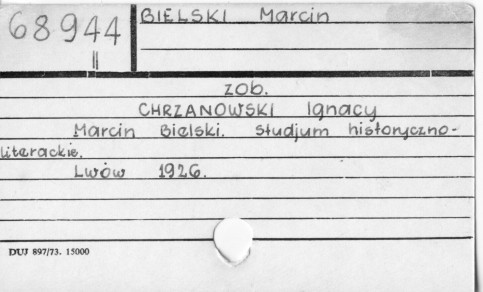 68944
II
BIELSKI Marcin
zob.
CHRZANOWSKI Ignacy
Marcin Bielski. Studjum historyczno-
literackie.
Lwów 1926.
DUJ 897/73. 15000